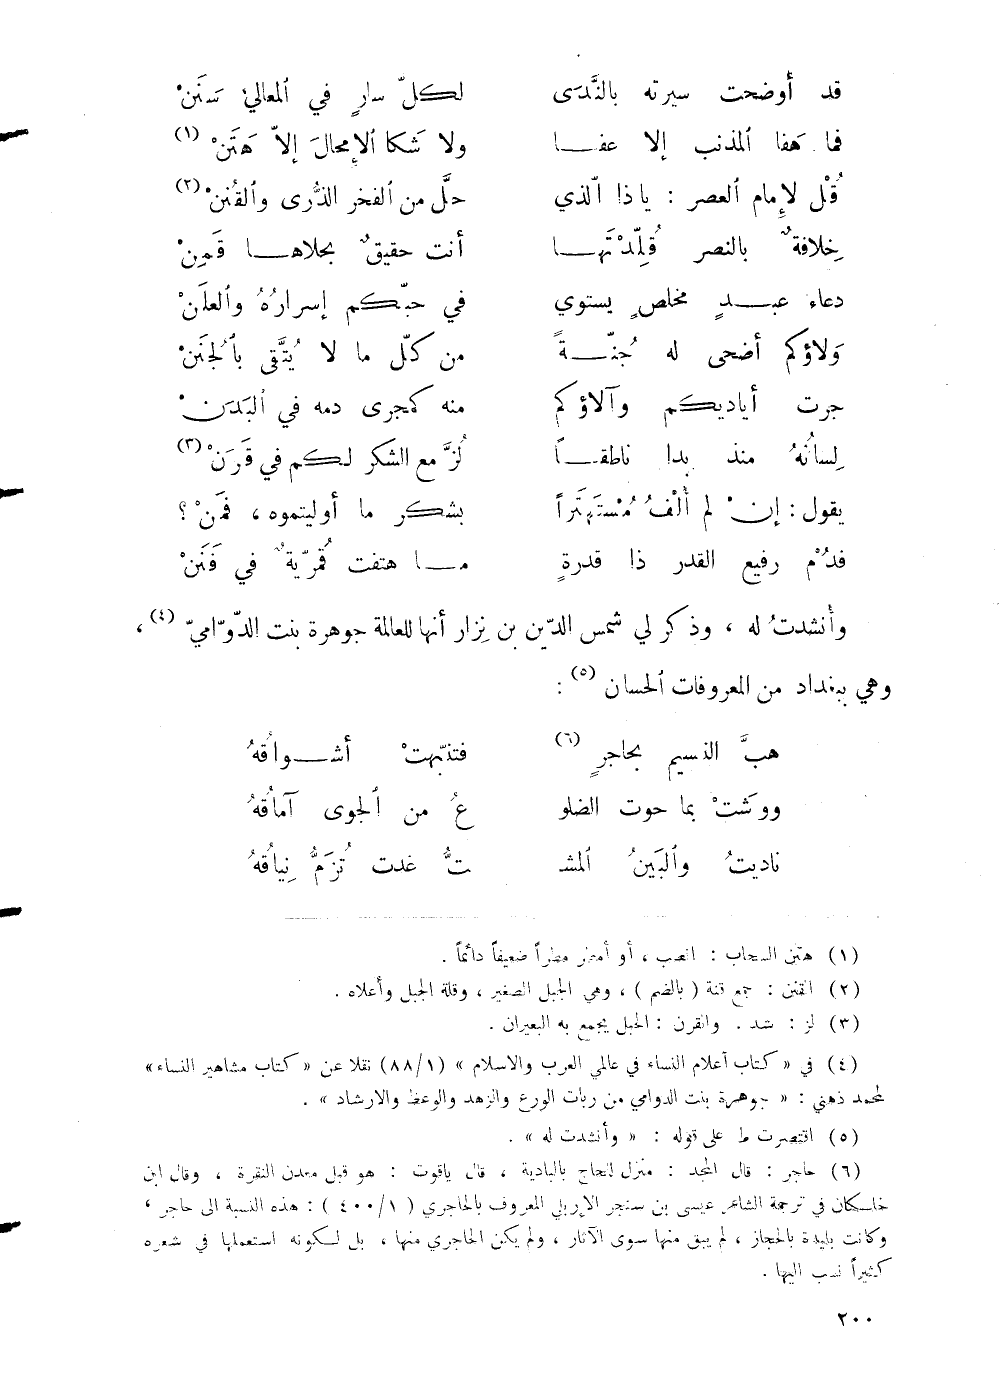 قد أوضحت سيرته بالنَّدَى لكلّ سارٍ في ٱلمعاليْ سَنَنْ
فما هَفا ٱلمذنب إلا عفـــا ولا شَكا ٱلإِمحالَ إلاّ هَتَنْ (١)
قُلْ لإِمام ٱلعصر : ياذا ٱلّذي حلَّ من ٱلفخر ٱلذُّرى وٱلقُنَنْ (٢)
خِلافةٌ بالنصر قُلِّدْتَهـــا أنت حقيقٌ بحلاهـــا قَمِنْ
دعاء عبــدٍ مخلصٍ يستوي في حبّكم إسرارُهُ وٱلعلَنْ
وَلاؤكم أضحى له جُنّـــةً من كلّ ما لا يُتَّقى بٱلجُنَنْ
جرت أياديكم وآلاؤكم منه كمجرى دمه في ٱلبَدَنْ
لِسانُهُ منذ بدا ناطقـــاً لُزَّ مع الشكر لكم في قَرَنْ (٣)
يقول : إنْ لم أُلْفَ مُسْتَهتَراً بشكر ما أوليتموه ، فمَنْ ؟
فدُمْ رفيع القدر ذا قدرةٍ مـــا هتفت قُمريّةٌ في فَنَنْ
وأنشدتُ له ، وذكر لي شمس الدّين بن نِزار أنها للعالمة جوهرة بنت الدّوّاميّ (٤) ،
وهي ببغداد من المعروفات ٱلحسان (٥) :
هبَّ النسيم بحاجرٍ (٦) فتنبّهتْ أشـــواقُهُ
ووَشتْ بما حوت الضلو عُ من ٱلجوى آماقُهُ
ناديتُ وٱلبَينُ ٱلمشـ ـتُّ غدت تُزَمُّ نِياقُهُ
(١) هتن السحاب : انصب ، أو أمطر مطراً ضعيفاً دائماً .
(٢) القنن : جمع قنة ( بالضم ) ، وهي الجبل الصغير ، وقلة الجبل وأعلاه .
(٣) لز : شد . والقرن : الحبل يجمع به البعيران .
(٤) في « كتاب أعلام النساء في عالمي العرب والاسلام » (٨٨/١) نقلا عن « كتاب مشاهير النساء »
لمحمد ذهني : « جوهرة بنت الدوامي من ربات الورع والزهد والوعظ والارشاد » .
(٥) اقتصرت ط على قوله : « وأنشدت له » .
(٦) حاجر : قال المجد : منزل للحاج بالبادية ، قال ياقوت : هو قبل معدن النقرة ، وقال ابن
خلكان في ترجمة الشاعر عيسى بن سنجر الإربلي المعروف بالحاجري ( ٤٠٠/١ ) : هذه النسبة الى حاجر ،
وكانت بليدة بالحجاز ، لم يبق منها سوى الآثار ، ولم يكن الحاجري منها ، بل لكونه استعملها في شعره
كثيراً نسب اليها .
٢٠٠